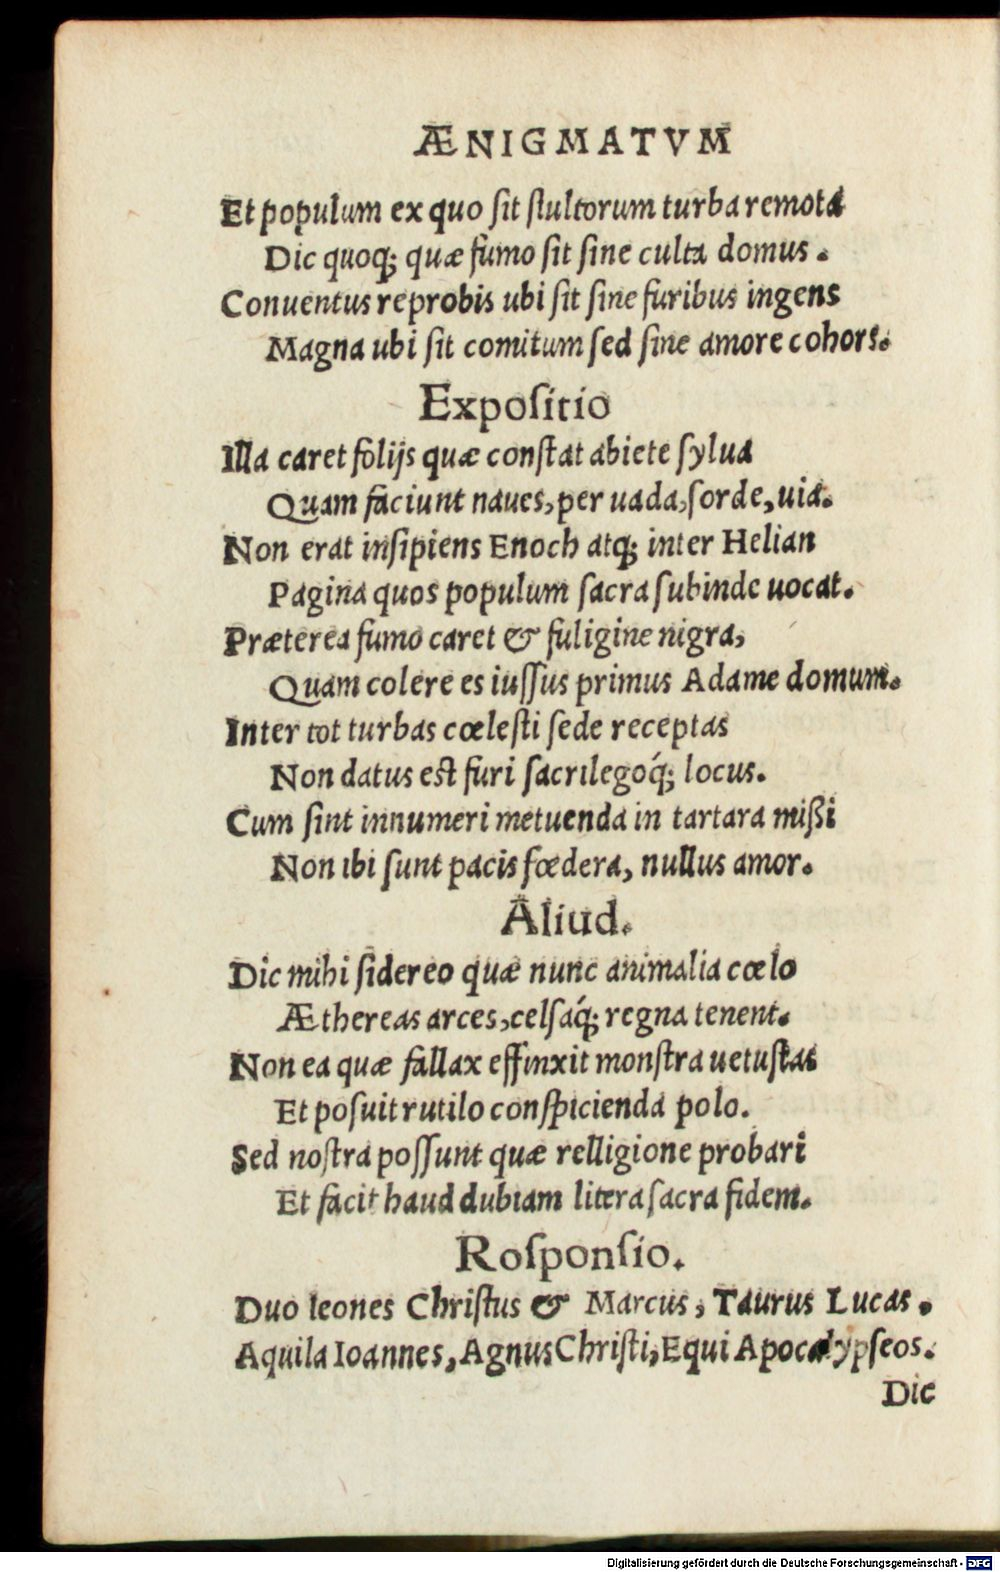 ÆNIGMATVM
Et populum ex quo ſit ſtultorum turba remota
Dic quoq; quæ fumo ſit ſine culta domus.
Conuentus reprobis ubi ſit ſine furibus ingens
Magna ubi ſit comitum ſed ſine amore cohors.
Expoſitio
Illa caret folijs quæ conſtat abiete ſylua
Quam faciunt naues, per uada, ſorde, uia.
Non erat inſipiens Enoch atq; inter Helian
Pagina quos populum ſacra ſubinde uocat.
Præterea fumo caret & fuligine nigra,
Quam colere es iuſſus primus Adame domum.
Inter tot turbas cœleſti ſede receptas
Non datus eſt furi ſacrilegoq́; locus.
Cum ſint innumeri metuenda in tartara mißi
Non ibi ſunt pacis fœdera, nullus amor.
Aliud.
Dic mihi ſidereo quæ nunc animalia cœlo
Æthereas arces, celſaq́; regna tenent.
Non ea quæ fallax effinxit monſtra uetuſtas
Et poſuit rutilo conſpicienda polo.
Sed noſtra poſſunt quæ relligione probari
Et facit haud dubiam litera ſacra fidem.
Roſponſio.
Duo leones Chriſtus & Marcus, Taurus Lucas.
Aquila Ioannes, Agnus Chriſti, Equi Apocalypſeos.
Dic
Digitalisierung gefördert durch die Deutsche Forschungsgemeinschaft - DFG